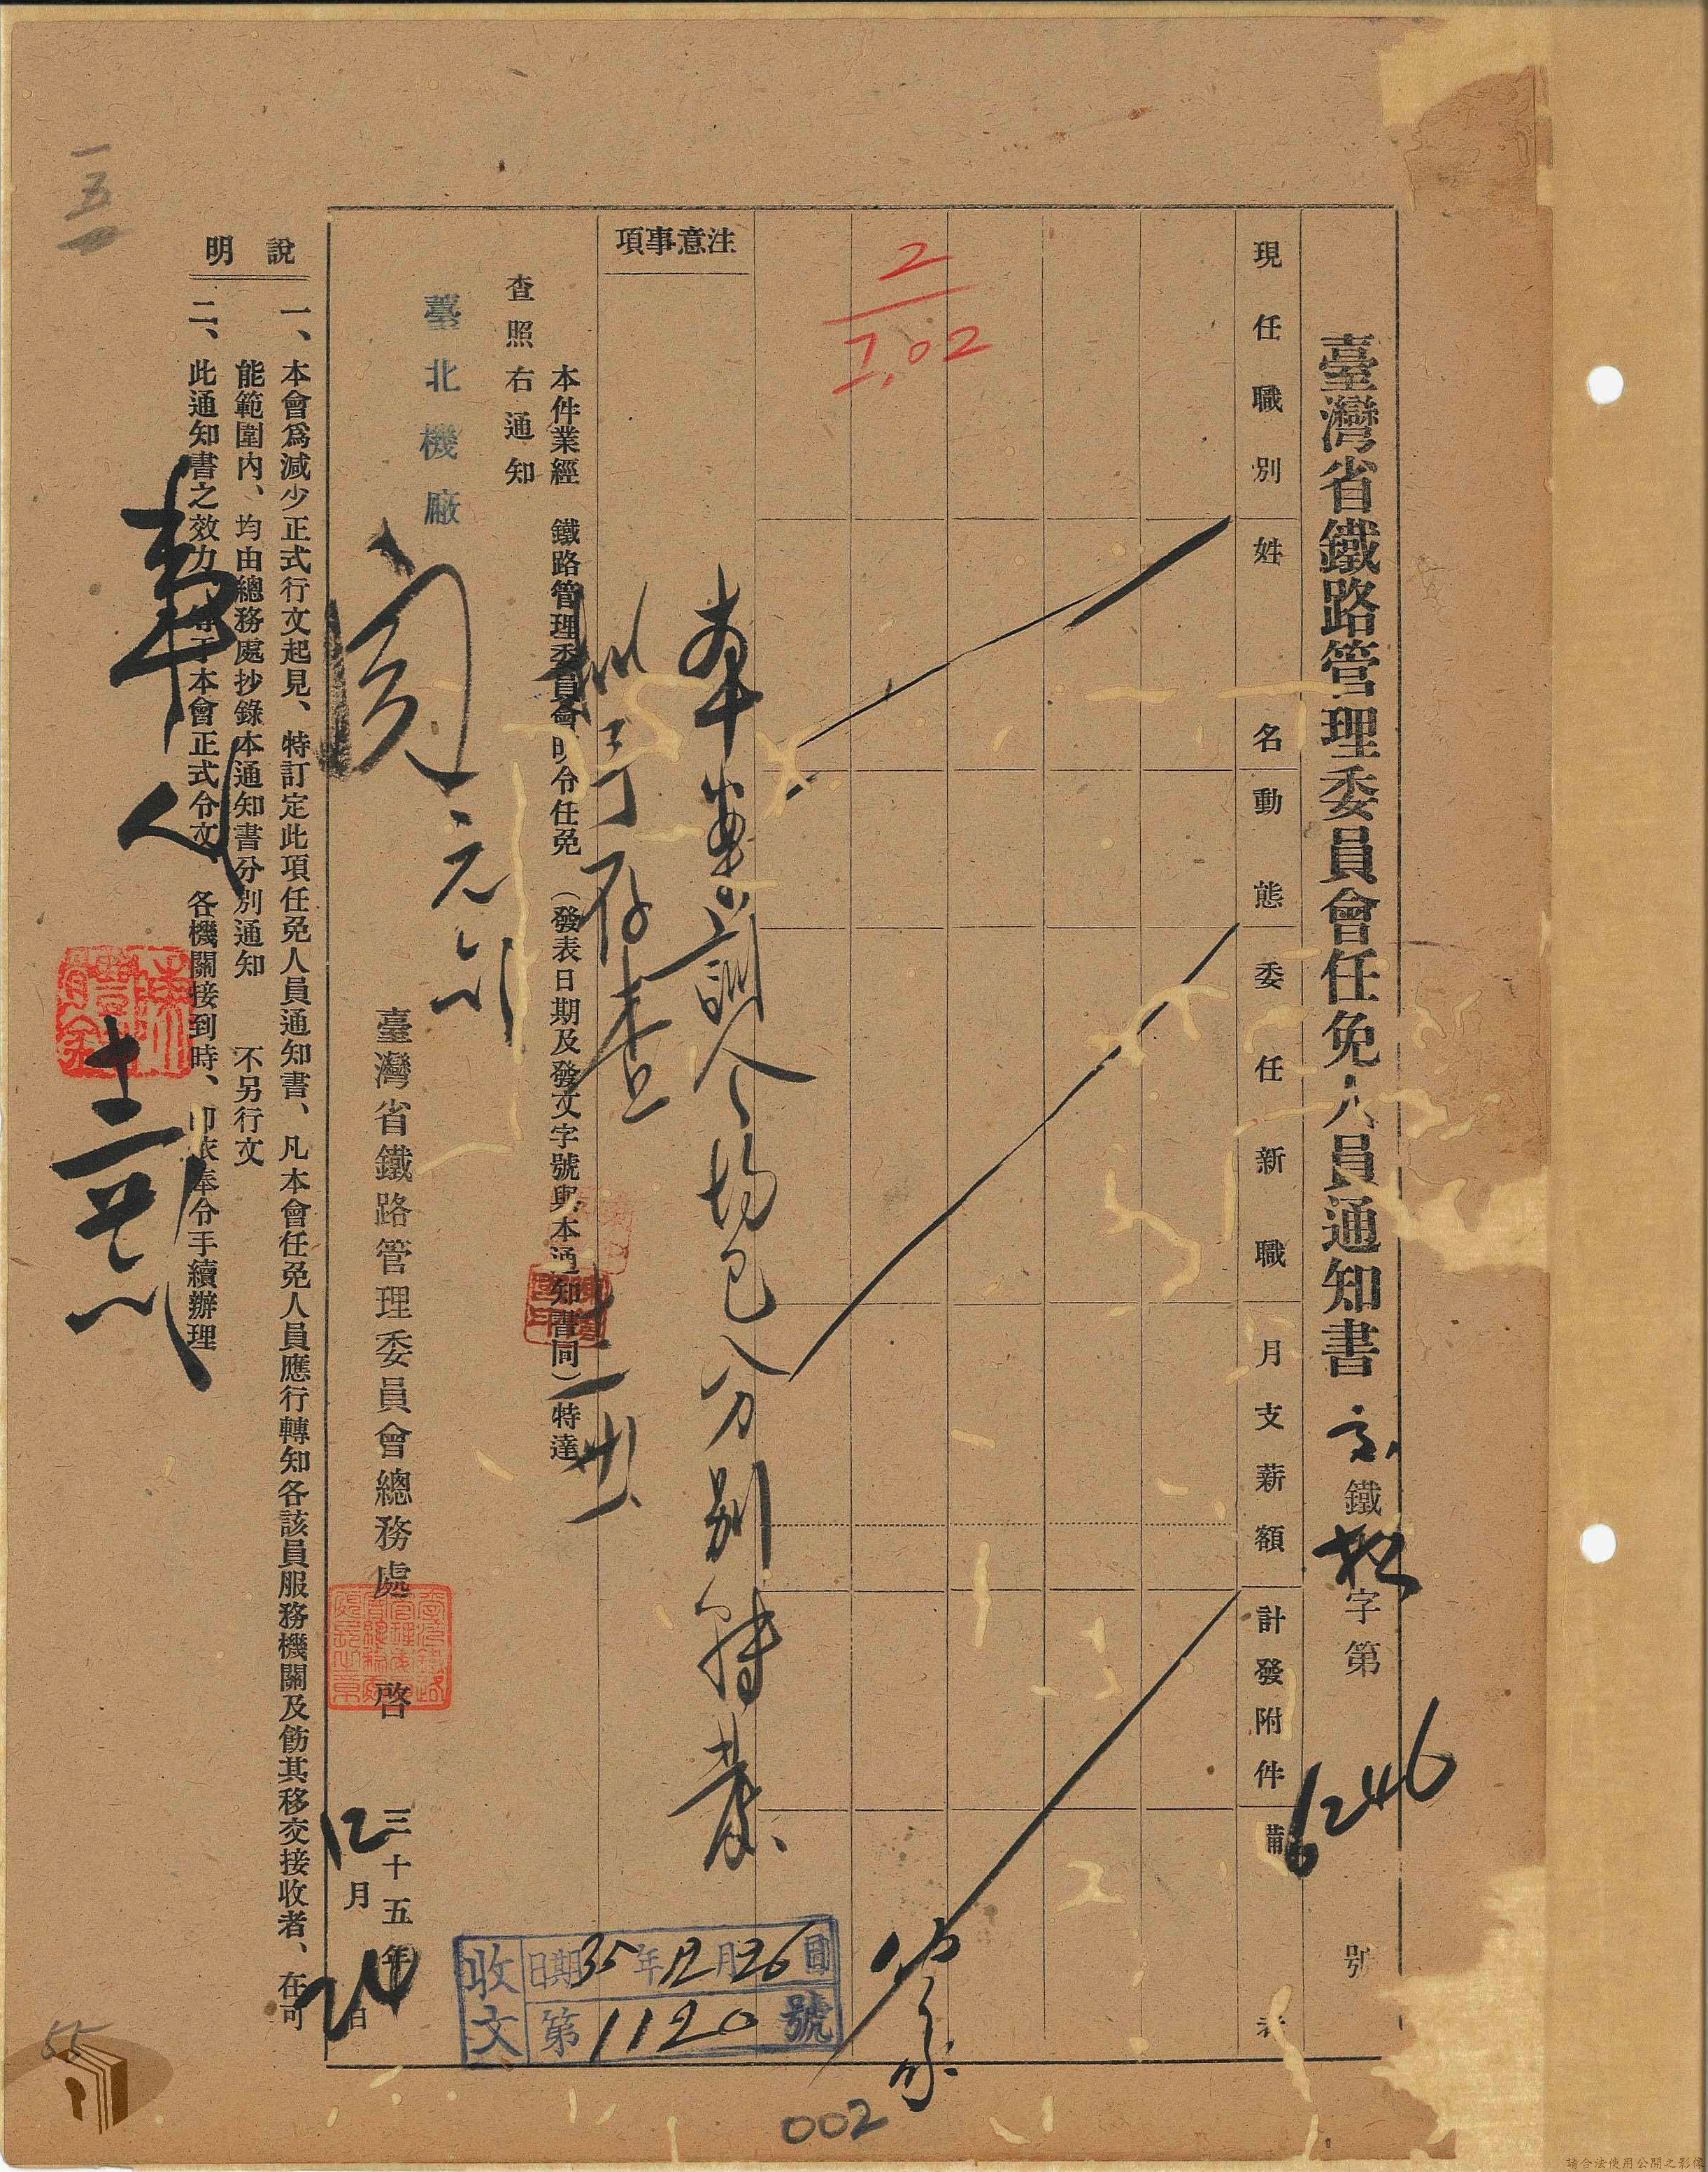 臺灣省鐵路管理委員會任免人員通知書 鐵 字第 6246 號
現任職別
姓名
動態
委任新職
月支薪額
計發附件
備考
2
1.02
注意事項
奉 訓令 分別
存查
本件業經 鐵路管理委員會明令任免(發表日期及發文字號與本通知書同)特達
查照右通知
臺北機廠
閱
臺灣省鐵路管理委員會總務處 啓
三十五年
12月24日
收文
日期35年12月26日
第1120號
說明
一、本會爲減少正式行文起見、特訂定此項任免人員通知書、凡本會任免人員應行轉知各該員服務機關及飭其移交接收者、在可
能範圍內、均由總務處抄錄本通知書分別通知 不另行文
二、此通知書之效力 于本會正式令文 各機關接到時、卽依奉令手續辦理
一五
55
002
請合法使用公開之影像